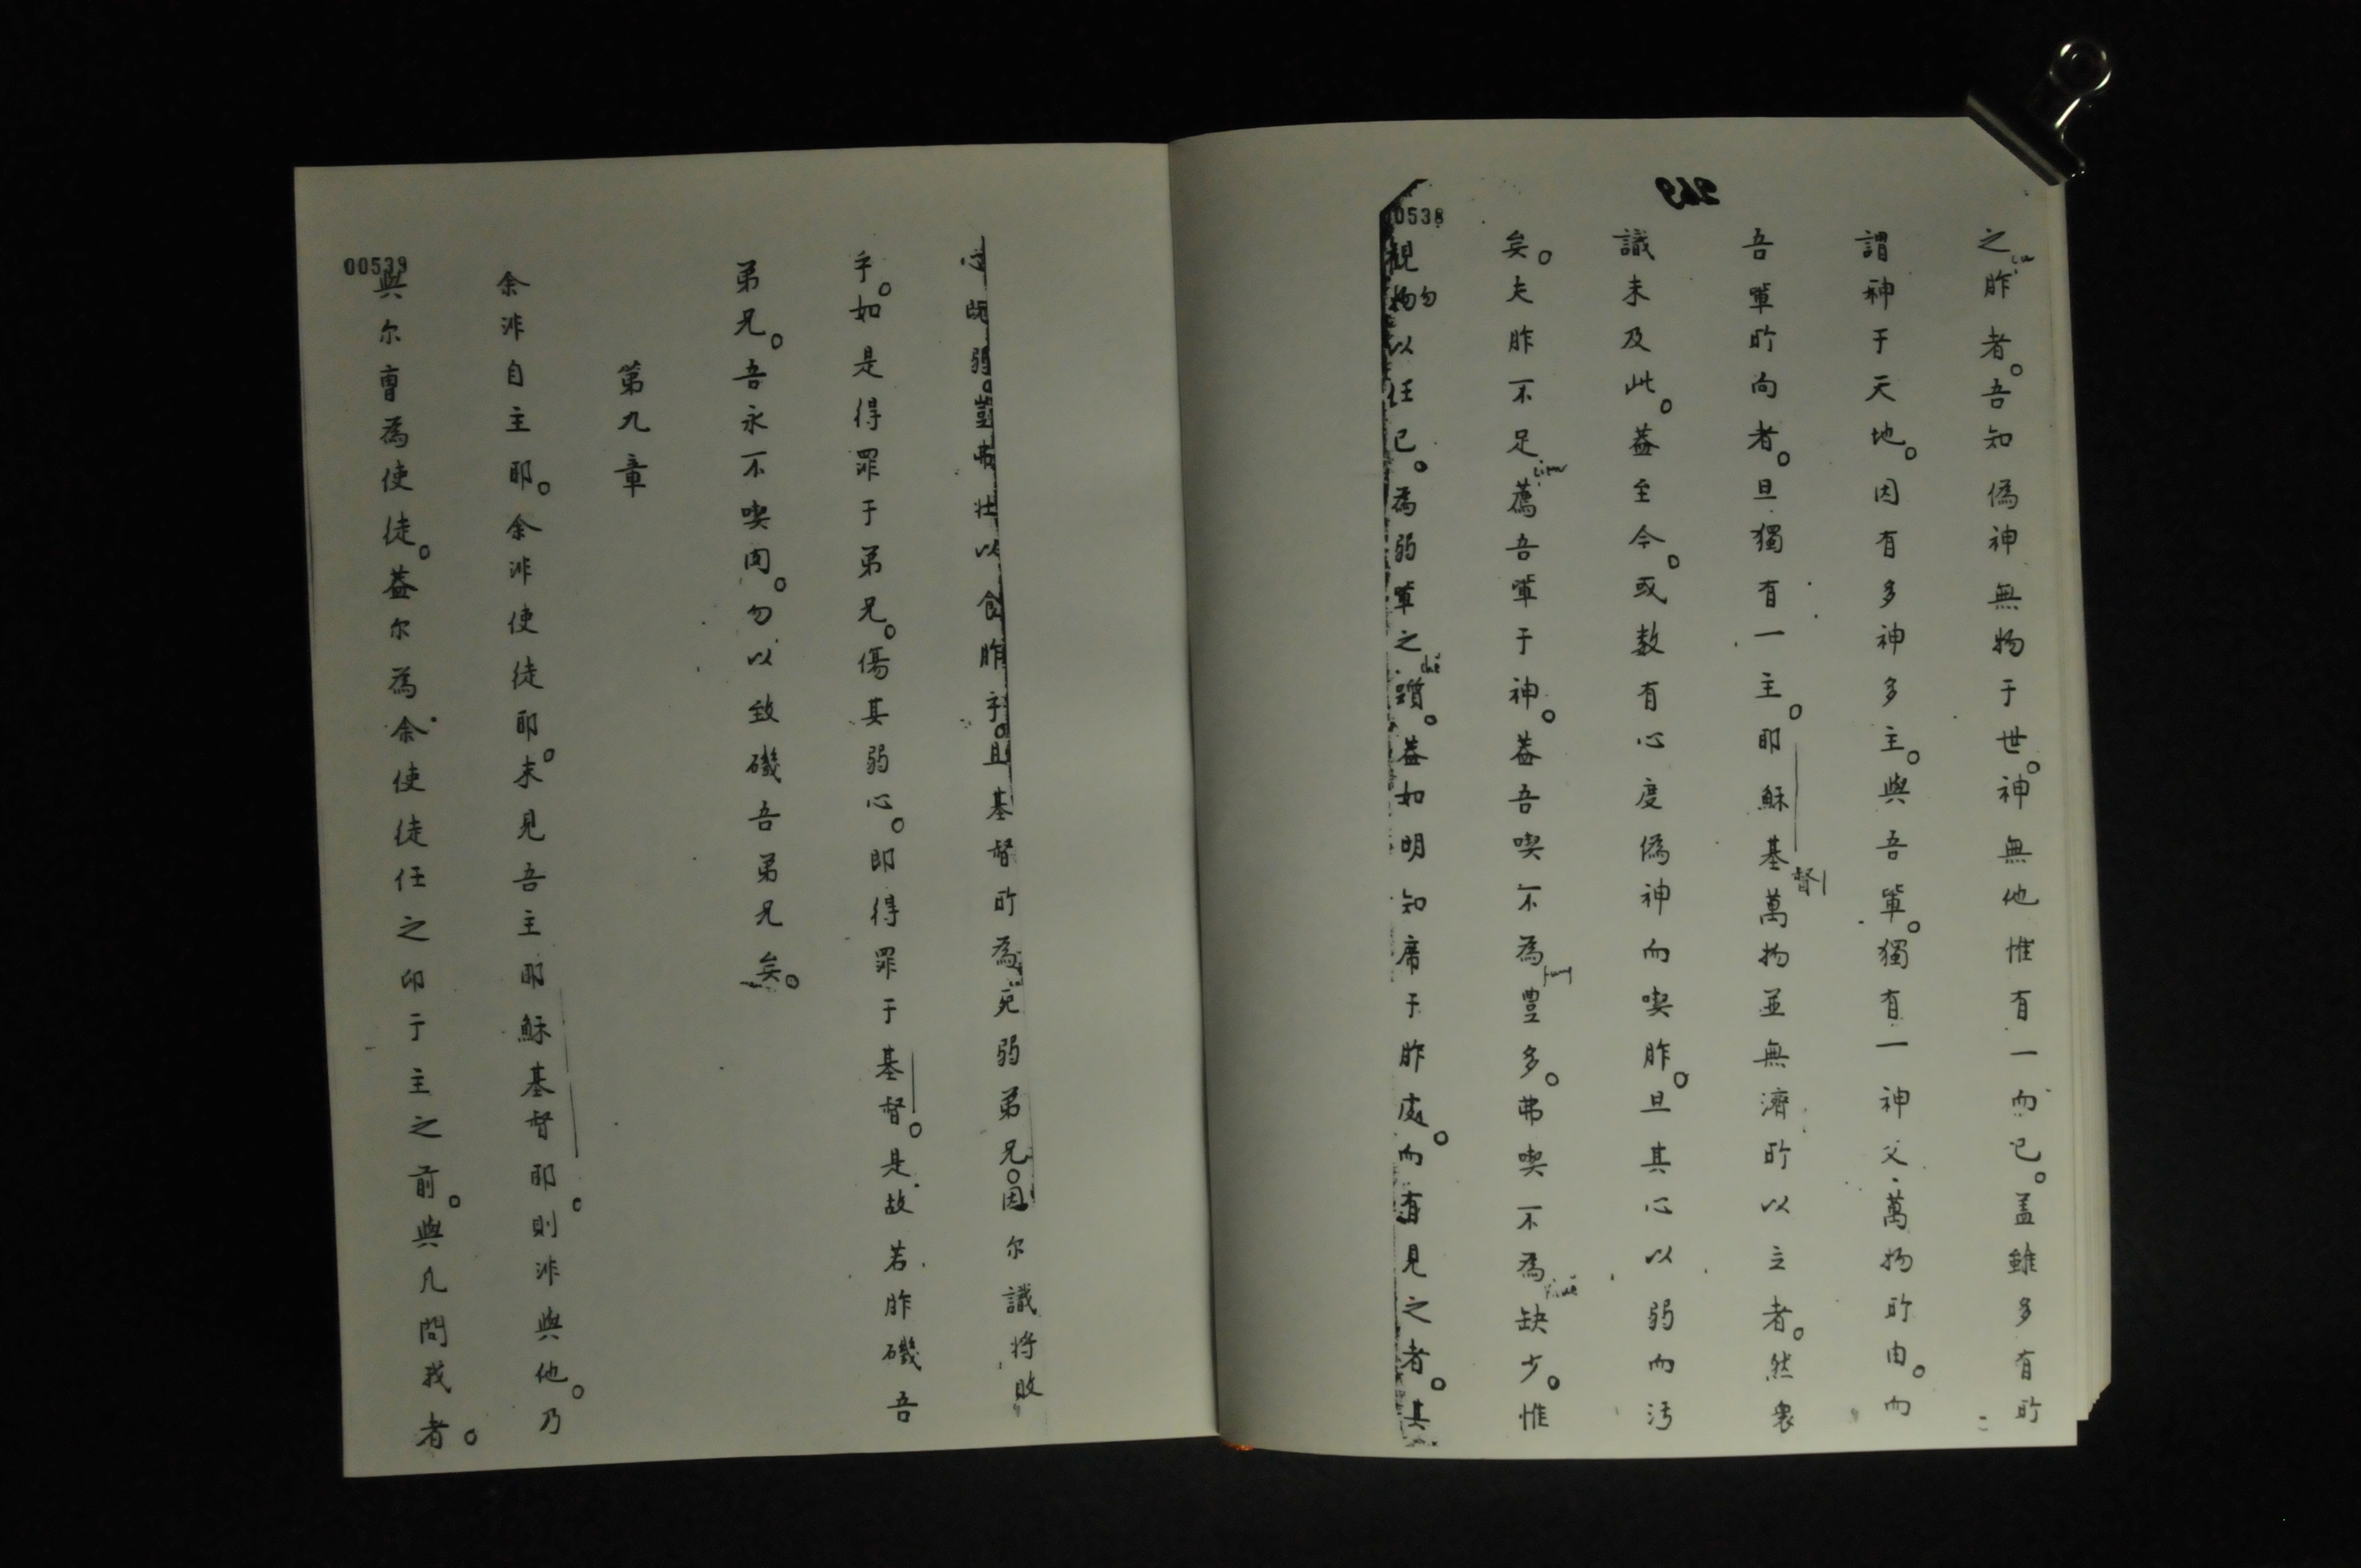 269
之胙者。吾知偽神無物于世。神無他惟有一而已。盖雖多有所
謂神于天地。因有多神多主。與吾軰。獨有一神父萬物所由。而
吾軰所向者。且獨有一主。耶穌基督萬物並無濟所以立者。然衆
識未及此。葢至今。或数有心度偽神而喫胙。且其心以弱而汚
矣。夫胙不足薦吾軰于神。葢吾喫不為豊多。弗喫不為缺少。惟
00538
觀勿以任已。為弱軰之躓。葢如明知席于胙處。而有見之者。其
心既弱。豈弗壮以食胙乎。且基督所為死弱弟兄。因尔識将敗
乎。如是得罪于弟兄。傷其弱心。即得罪于基督。是故若胙磯吾
弟兄。吾永不喫肉。勿以致磯吾弟兄矣。
第九章
余非自主耶。余非使徒耶。未見吾主耶穌基督耶。則非與他。乃
00539
與尔曺為使徒。葢尔為余使徒任之印于主之前。與凡問我者。